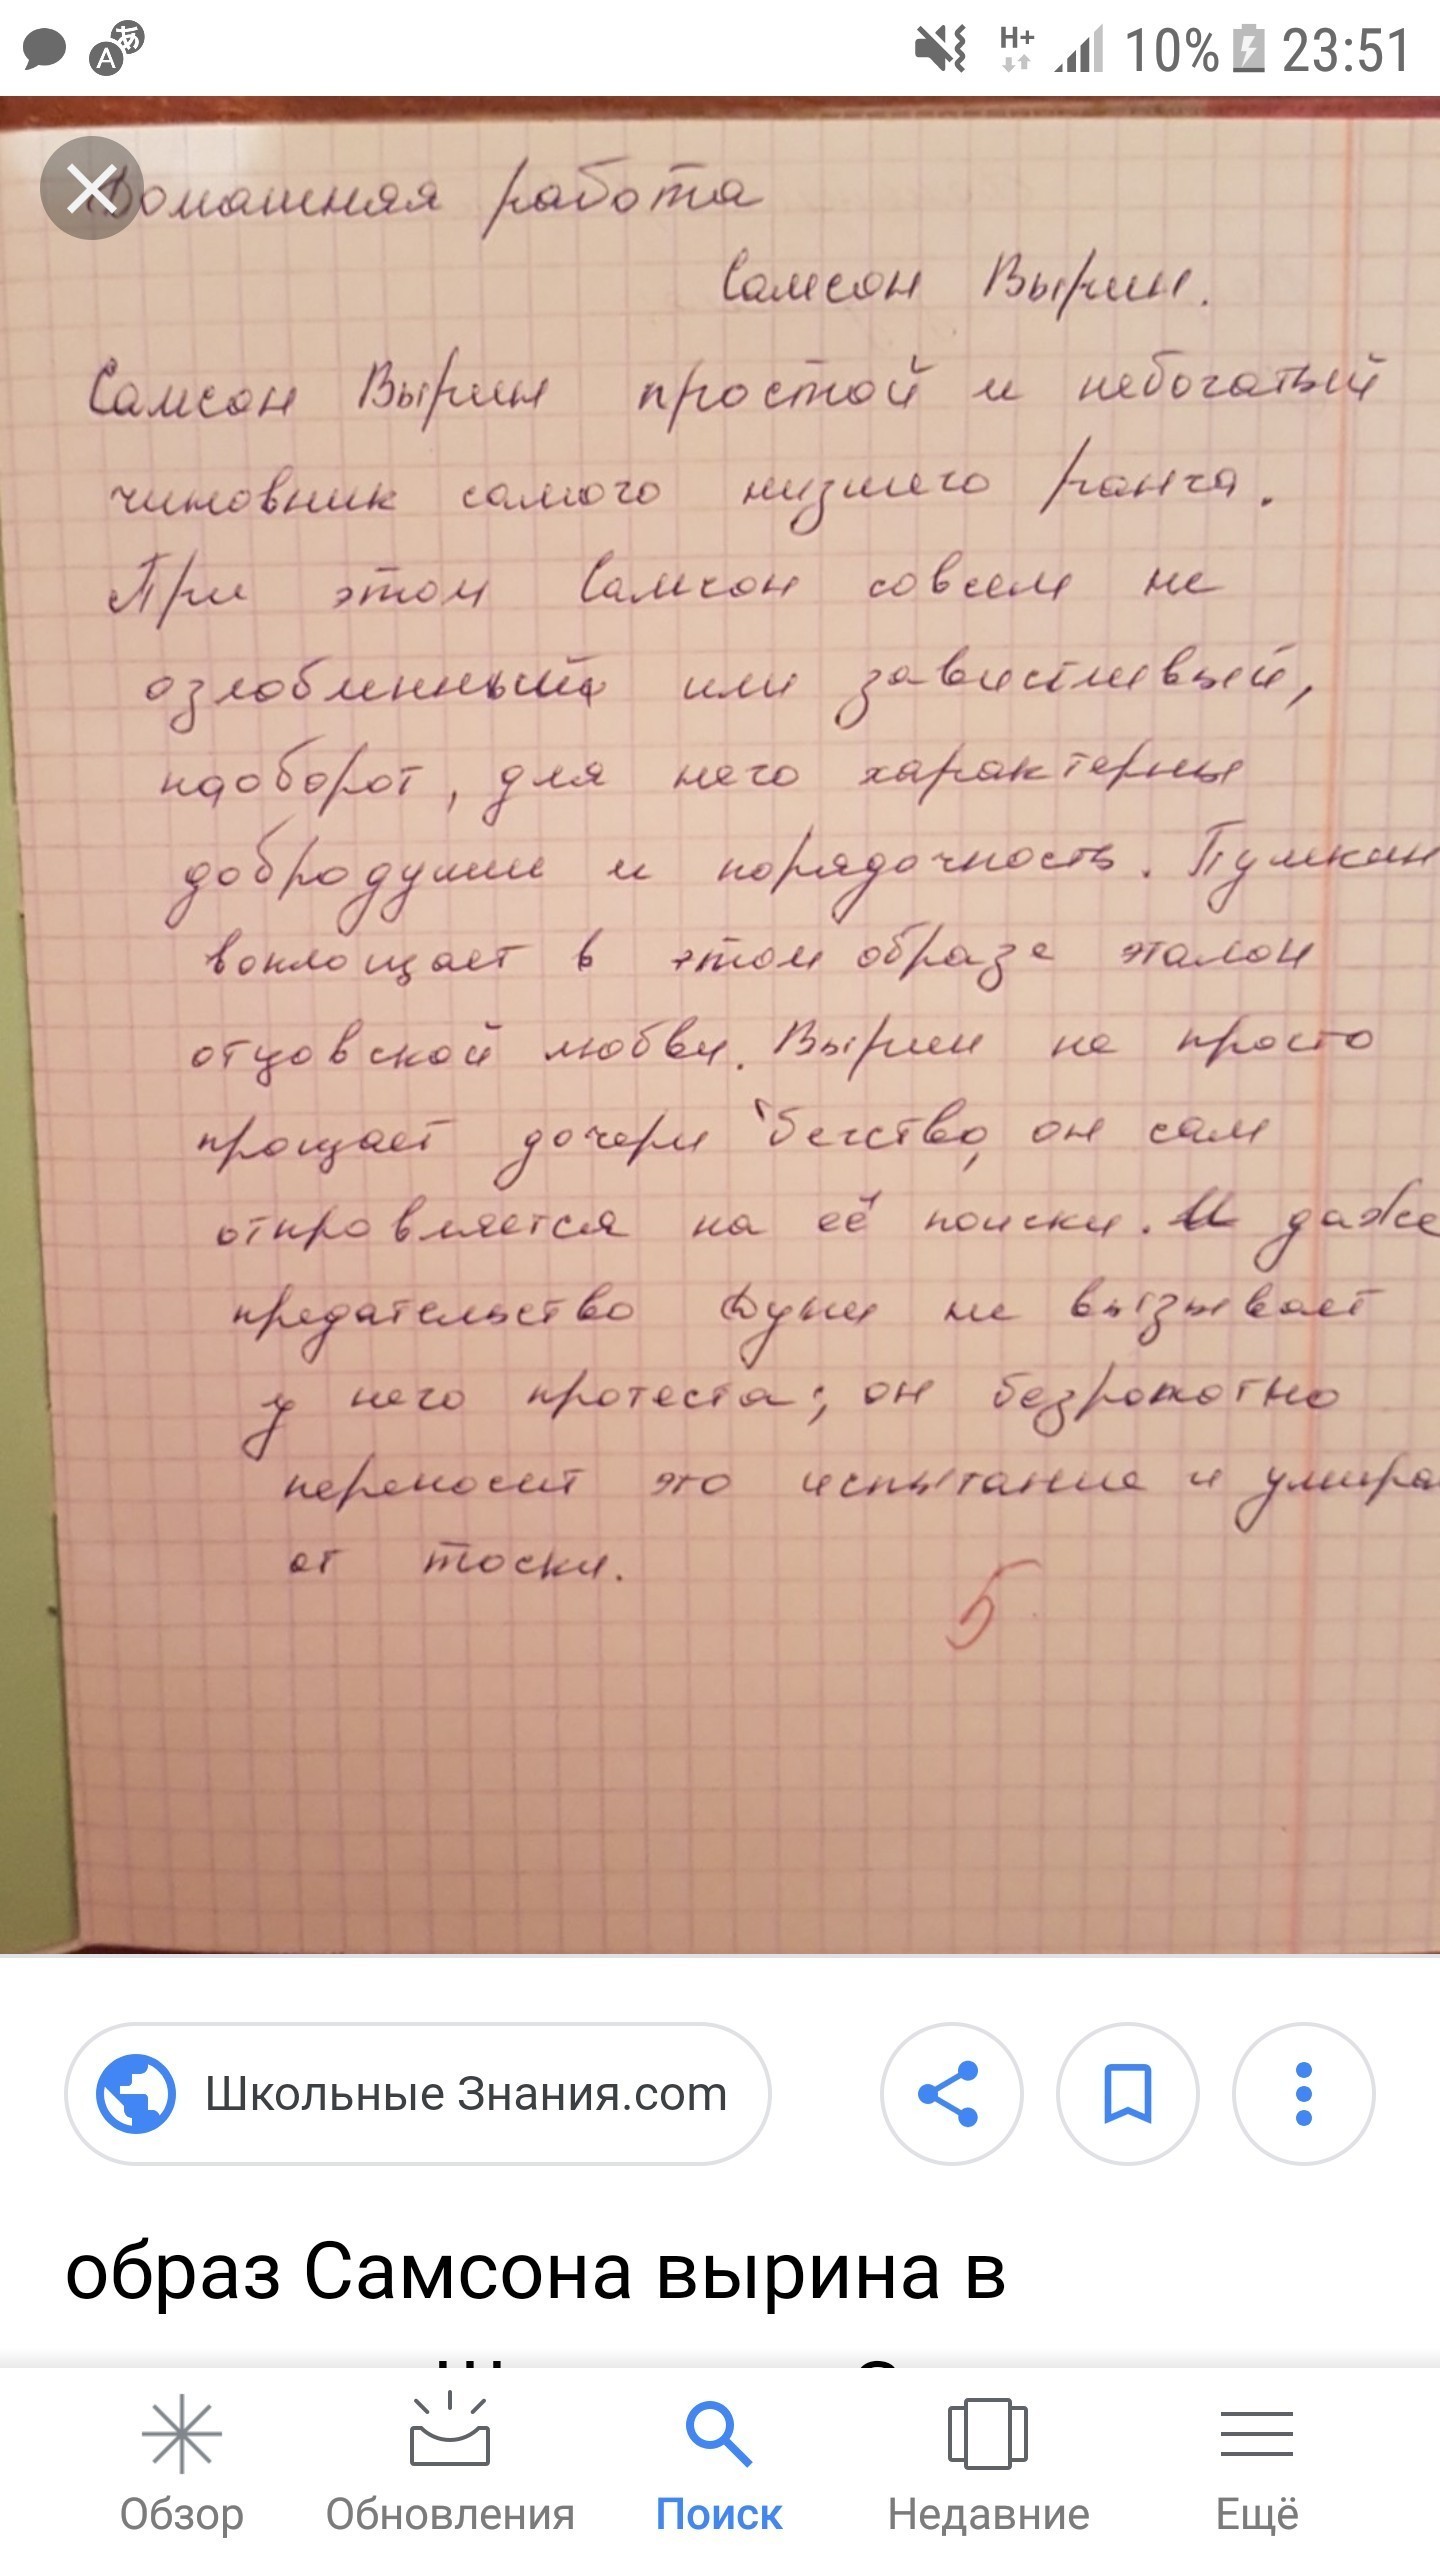 10% 23:51
Домашняя работа
Самсон Вырин.
Самсон Вырин простой и небогатый
чиновник самого низшего ранга.
При этом Самсон совсем не
озлобленный или завистливый,
наоборот, для него характерны
добродушие и порядочность. Пушкин
воплощает в этом образе эталон
отцовской любви. Вырин не просто
прощает дочери бегство, он сам
отправляется на её поиски. И даже
предательство Дуни не вызывает
у него протеста; он безропотно
переносит это испытание и умира
от тоски.
5
Школьные Знания.com
образ Самсона вырина в
Обзор Обновления Поиск Недавние Ещё